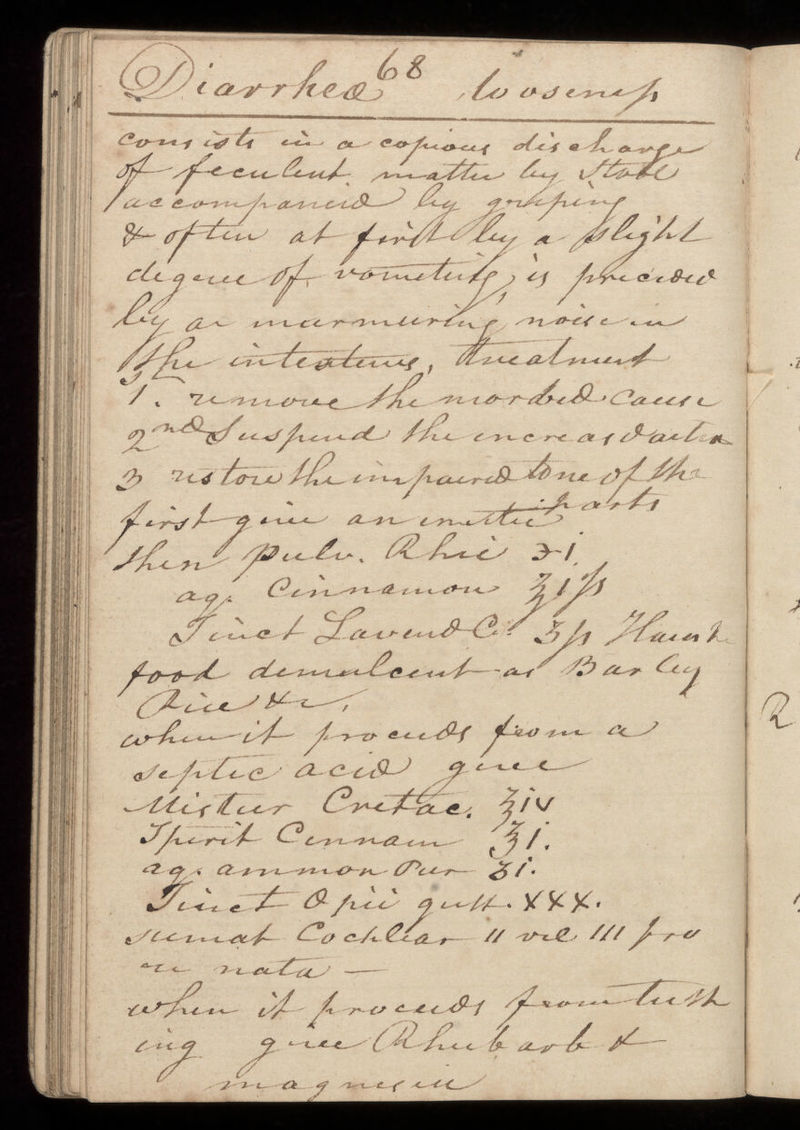 68
Diarrhea looseness
consists in a copious discharge
of feculent matter by Stool
accompanied by griping
& often at first by a slight
degree of vometing, is preceded
by a murmuring noise in
the intestines, treatment
1st. remove the morbid cause
2nd Suspend the increasd action
3 restore the impaired tone of the
parts
first give an emettic
then Pulv. Rhei ℈i
aq. Cinnamon ℥iſs
Tinct Lavend C. ʒſs Haust
food demulcent as Barley
Rice &c,
when it proceeds from a
septic acid give
Mistur Cretac. ℥iv
Spirit Cinnam ℥i.
aq. ammon Pur ʒi.
Tinct Opii gutt. XXX.
sumat Cochlear II vel III pro
re nata —
when it proceeds from teeth
ing give Rhubarb &
magnesia
R